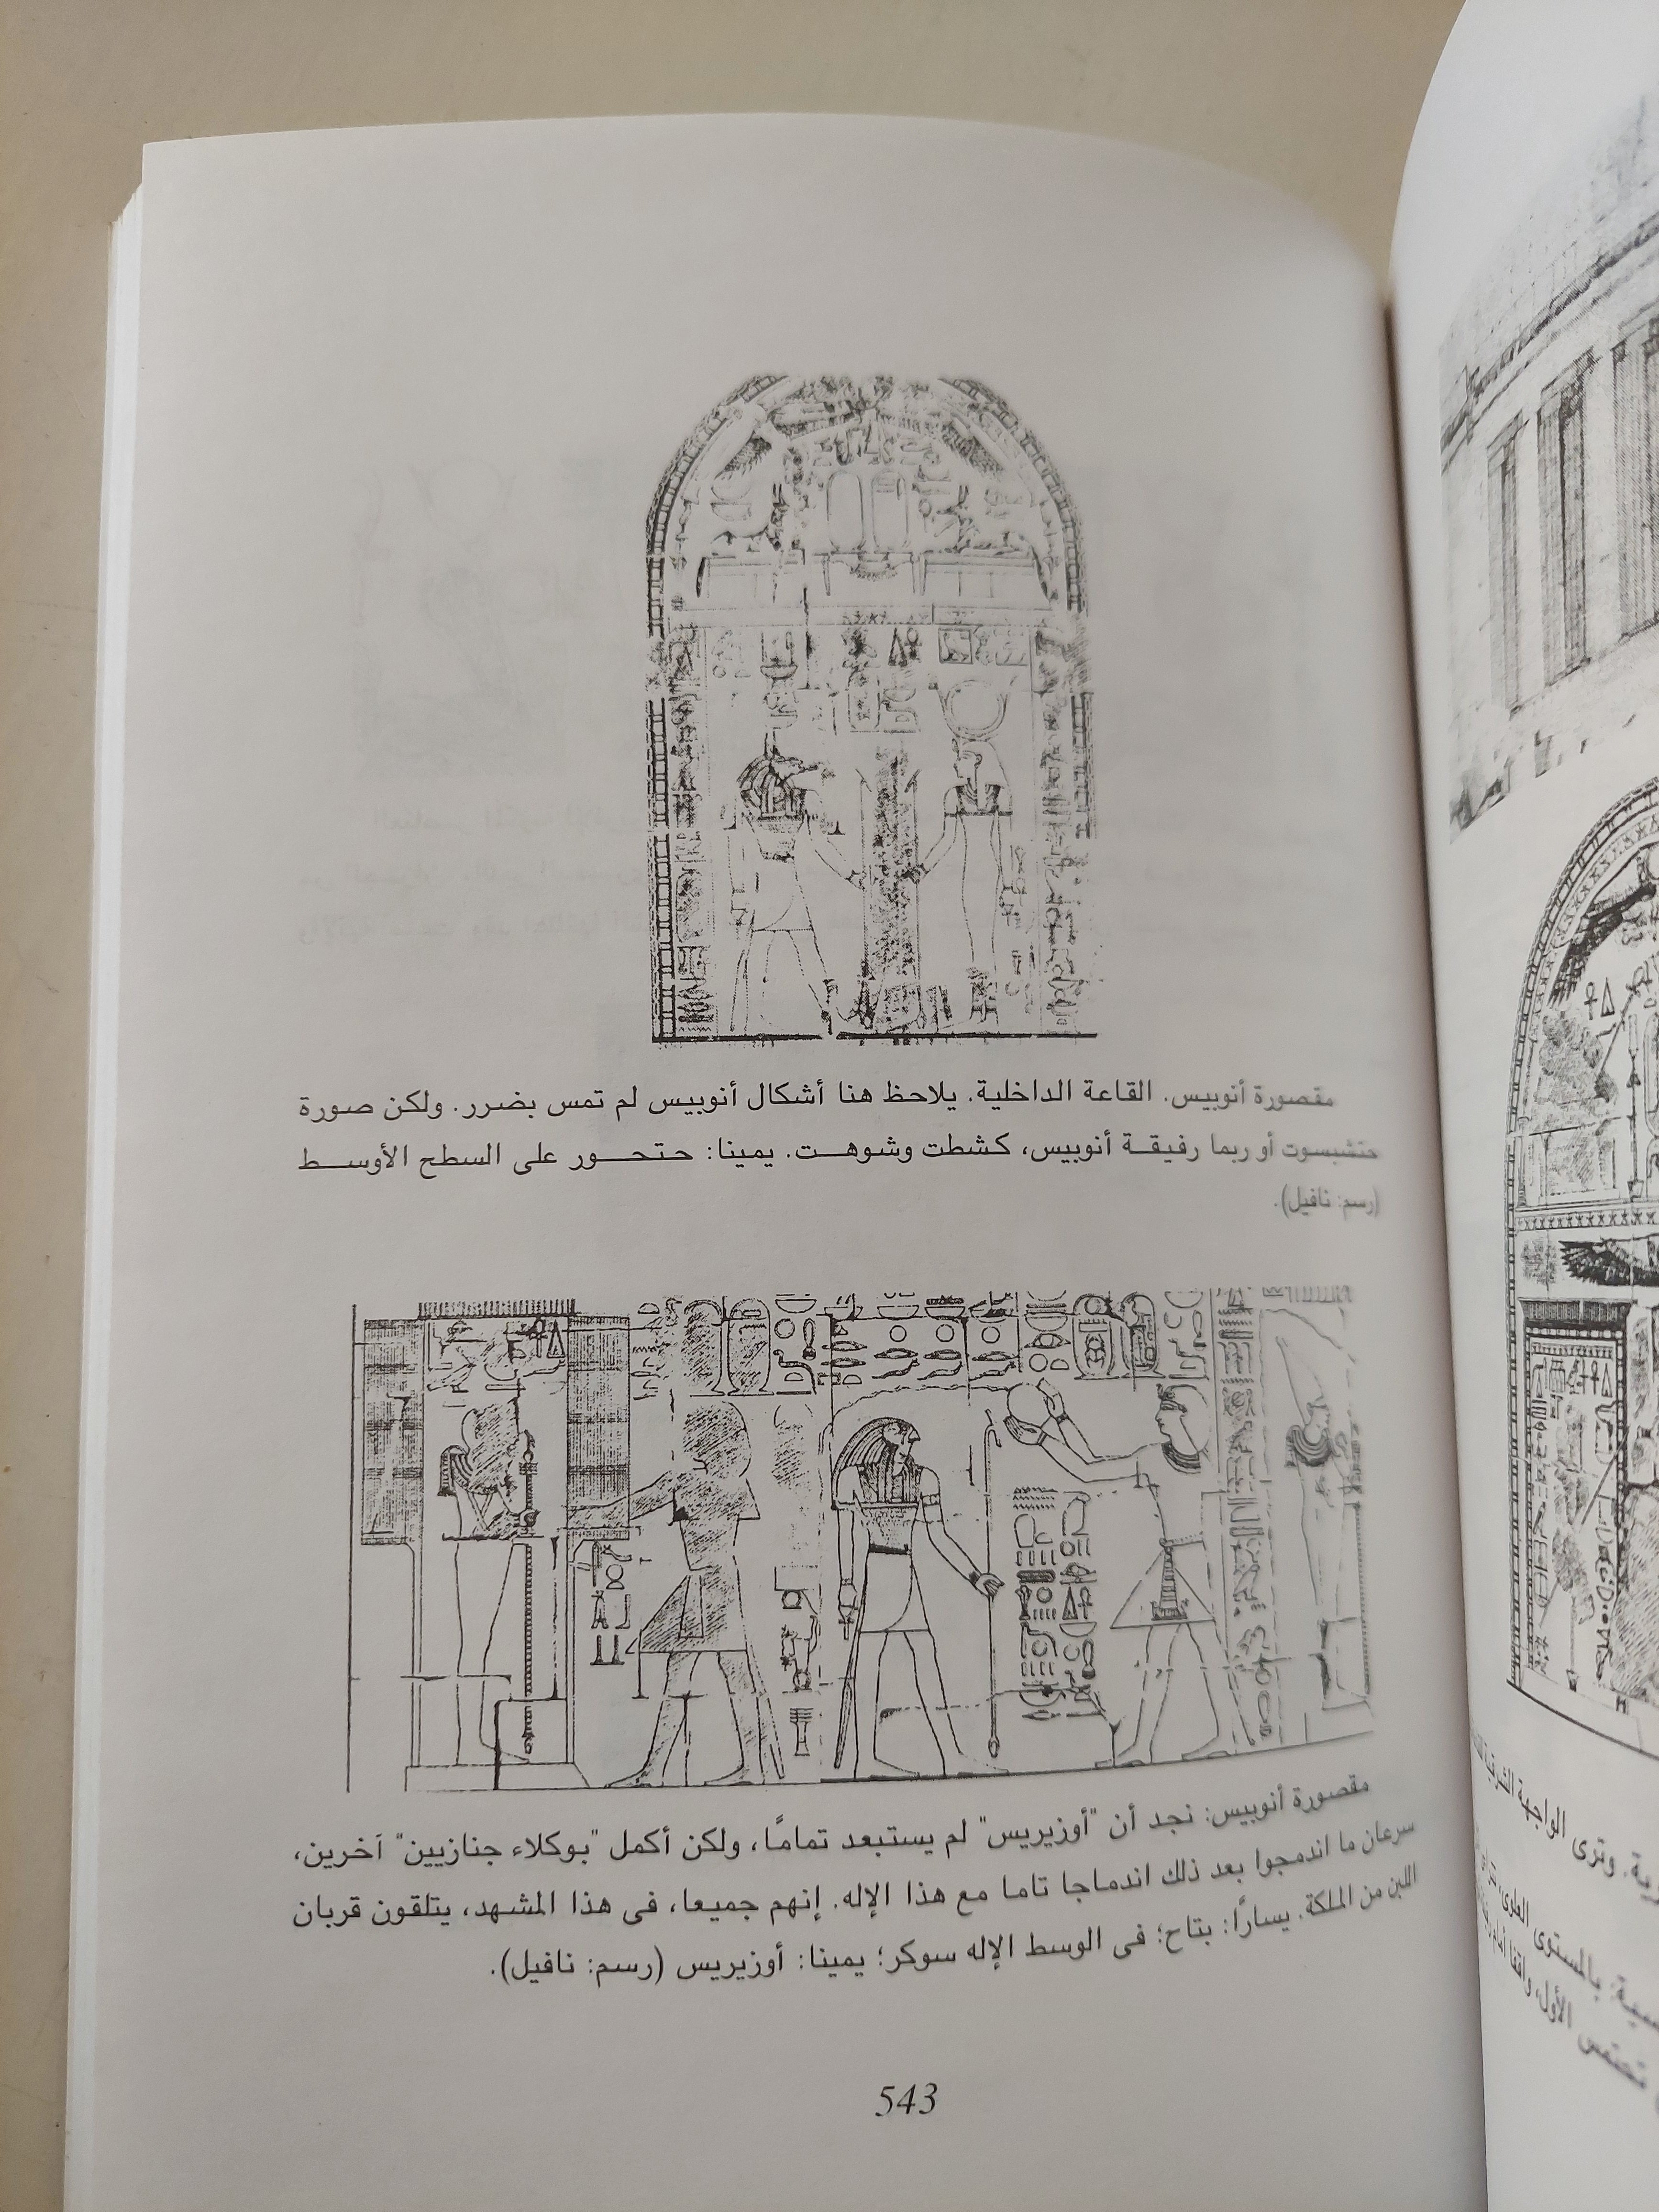 مقصورة أنوبيس. القاعة الداخلية. يلاحظ هنا أشكال أنوبيس لم تمس بضرر. ولكن صورة
حتشبسوت أو ربما رفيقة أنوبيس، كشطت وشوهت. يمينا: حتحور على السطح الأوسط
(رسم: نافيل).
مقصورة أنوبيس: نجد أن "أوزيريس" لم يستبعد تمامًا، ولكن أكمل "بوكلاء جنازيين" آخرين،
سرعان ما اندمجوا بعد ذلك اندماجا تاما مع هذا الإله. إنهم جميعا، فى هذا المشهد، يتلقون قربان
اللبن من الملكة. يسارًا: بتاح؛ فى الوسط الإله سوكر؛ يمينا: أوزيريس (رسم: نافيل).
543
وترى الواجهة الشرقية
بالمستوى العلوى،
الأول، واقفا أمام